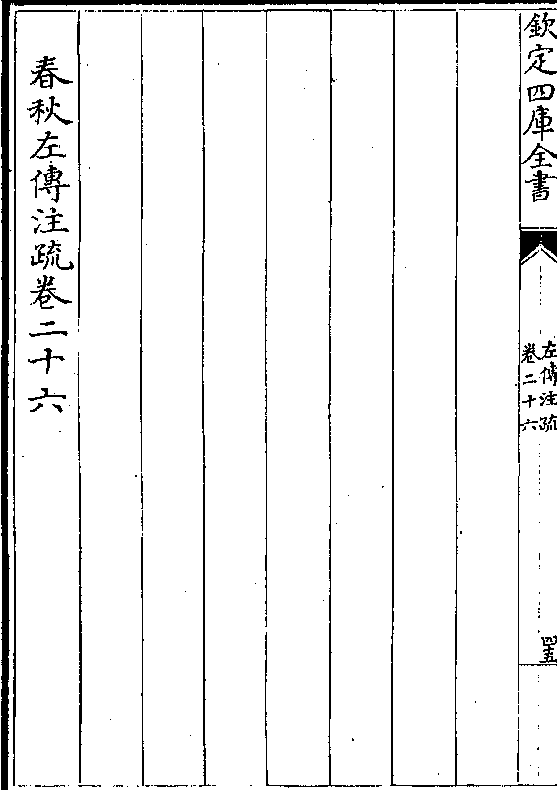 欽定四庫全書
左傳注疏
卷二十六
四五
春秋左傳注疏卷二十六